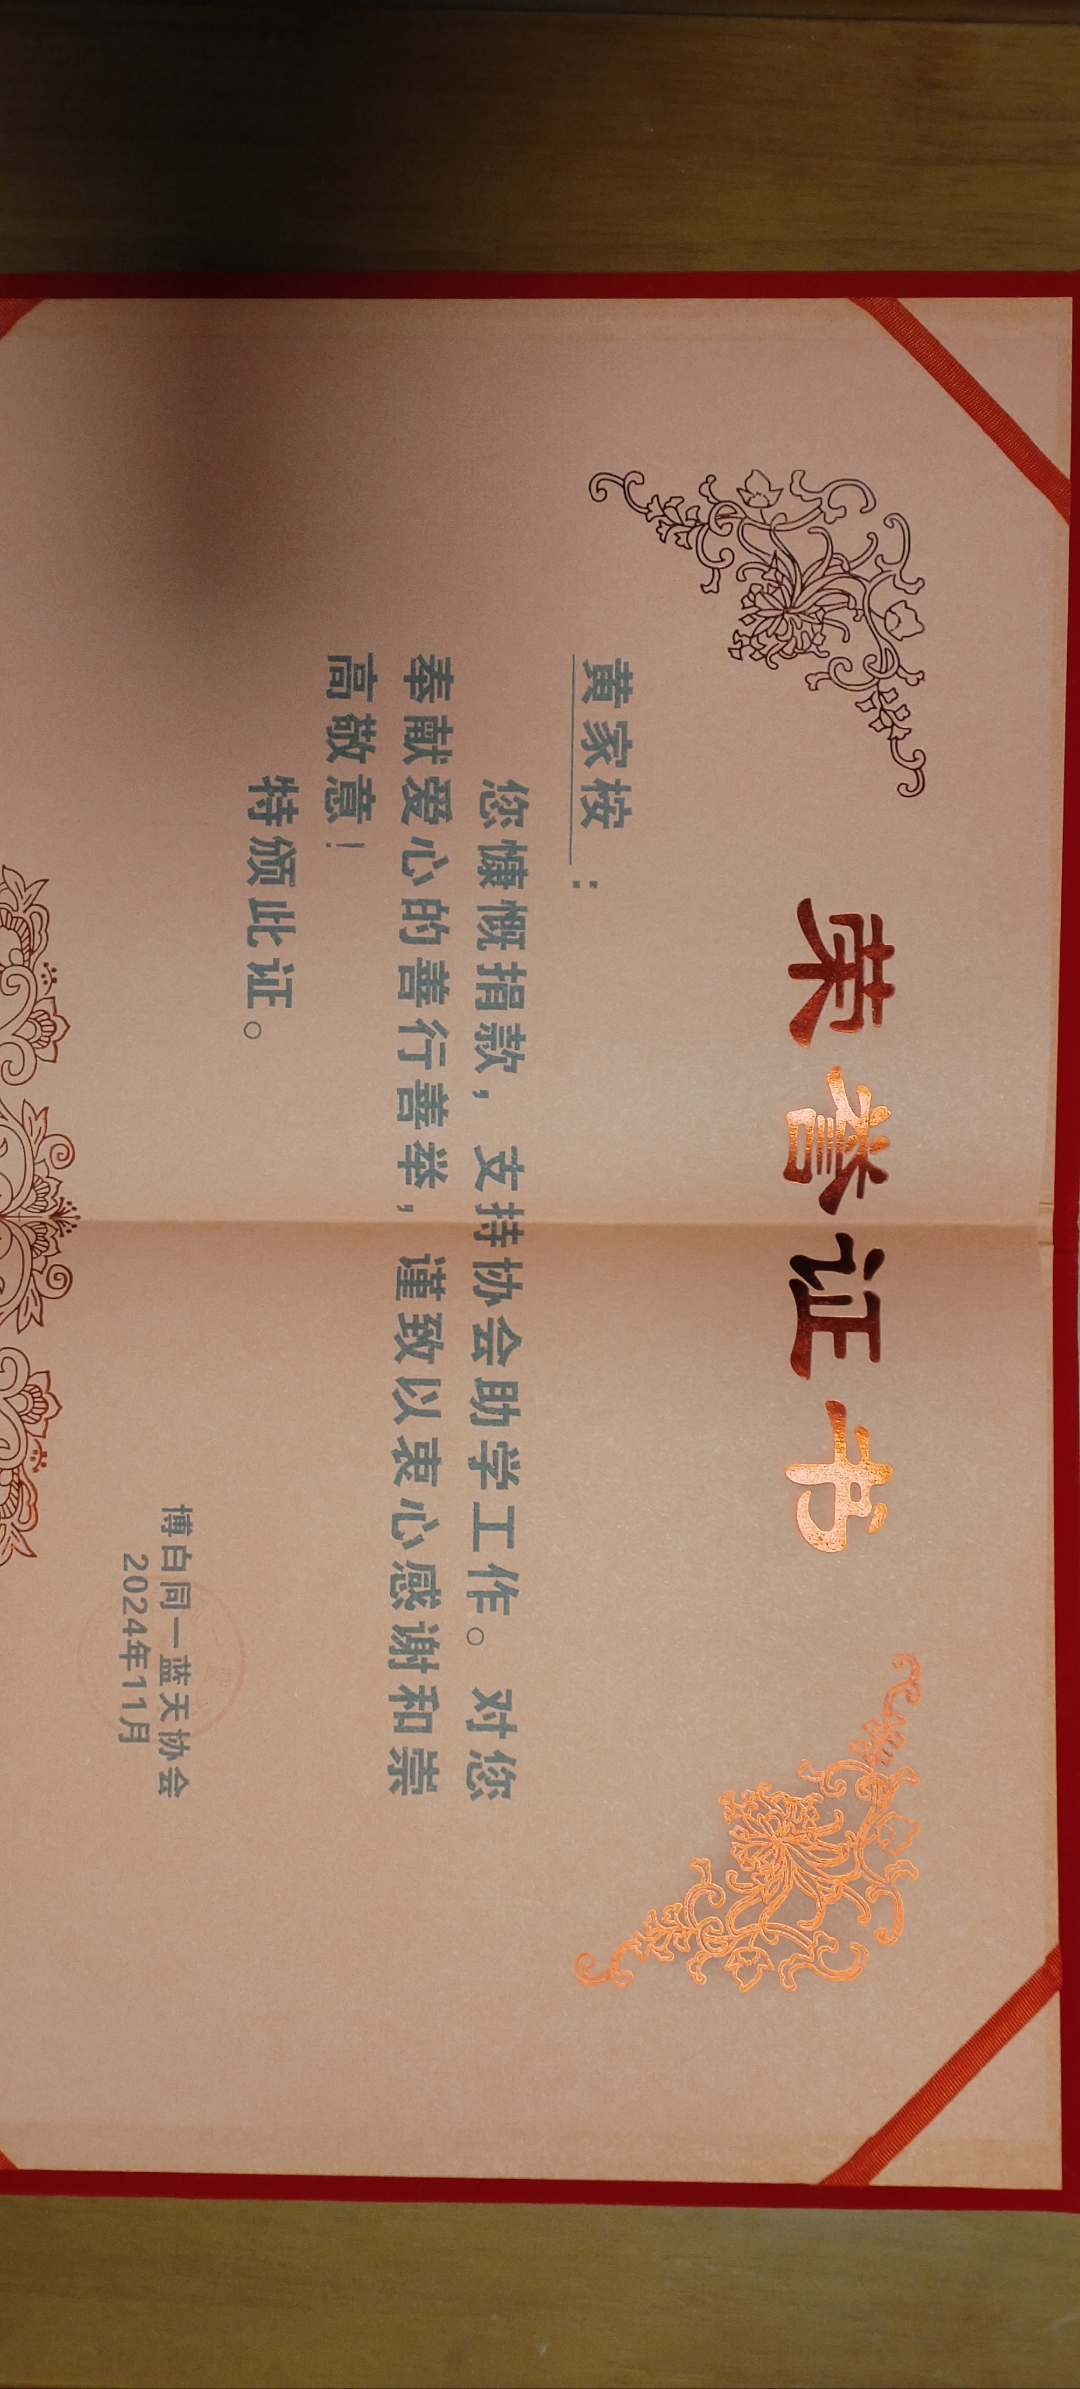 荣誉证书
黄家桉：
您慷慨捐款，支持协会助学工作。对您
奉献爱心的善行善举，谨致以衷心感谢和崇
高敬意！
特颁此证。
博白同一蓝天协会
2024年11月